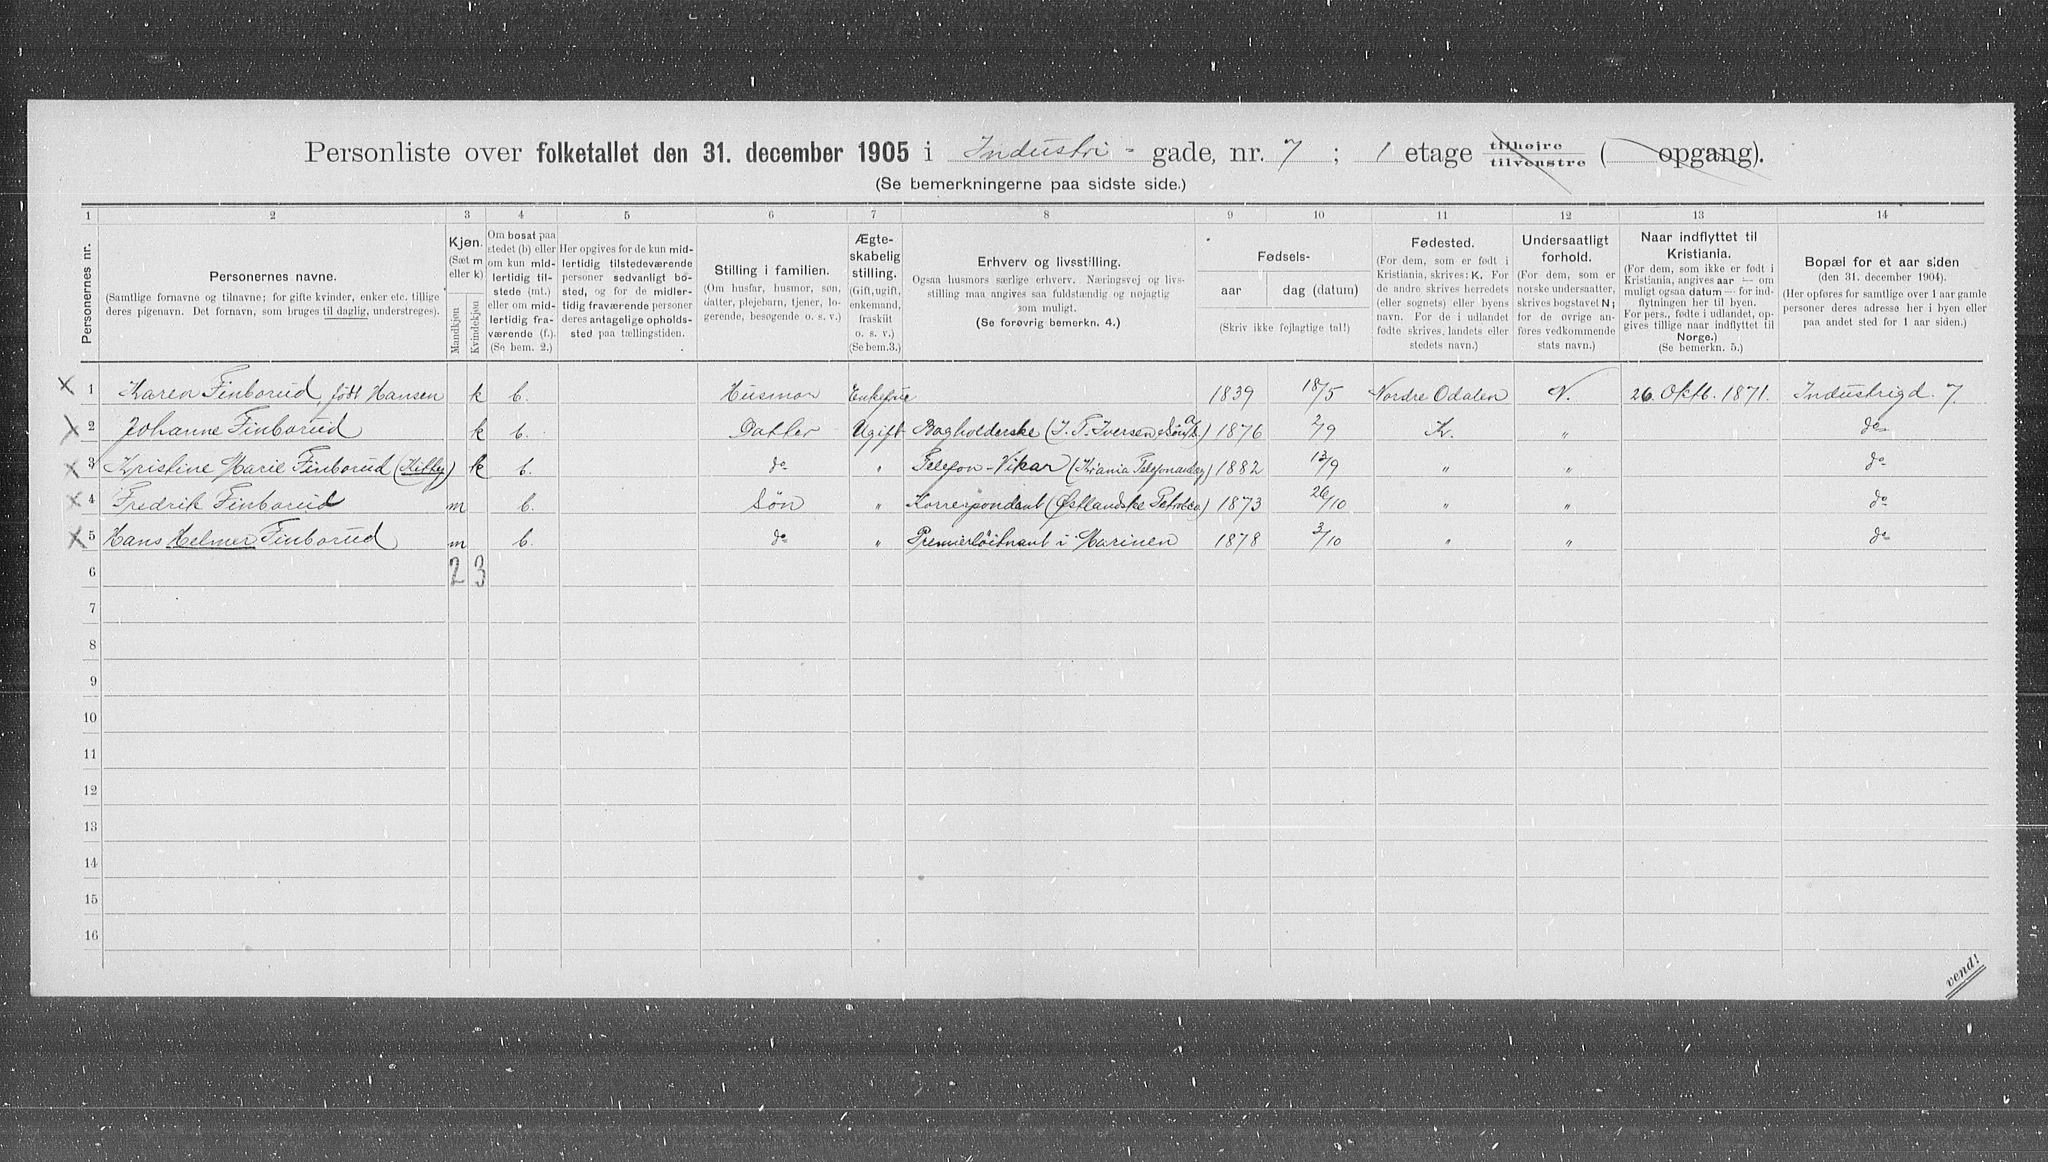 Personliste over folketallet den 31. december 1905 i Industri - gade, nr. 7 ; 1 etage tilhøjre tilvenstre ( opgang).
(Se bemerkningerne paa sidste side.)
1 2 3 4 5 6 7 8 9 10 11 12 13 14
Personernes nr.
Personernes navne.
(Samtlige fornavne og tilnavne; for gifte kvinder, enker etc. tillige
deres pigenavn. Det fornavn, som bruges til daglig, understreges).
Kjøn.
(Sæt m
eller k).
Mandkjøn
Kvindekjøn
Om bosat paa
stedet (b) eller
om kun mid-
lertidig til-
stede (mt.)
eller om mid-
lertidig fra-
værende (f.).
(Se bem. 2.)
Her opgives for de kun mid-
lertidig tilstedeværende
personer sedvanligt bo-
sted, og for de midler-
tidig fraværende personer
deres antagelige opholds-
sted paa tællingstiden.
Stilling i familien.
(Om husfar, husmor, søn,
datter, plejebarn, tjener, lo-
gerende, besøgende o. s. v.)
Ægte-
skabelig
stilling.
(Gift, ugift,
enkemand,
fraskilt
o. s. v.)
(Se bem.3.)
Erhverv og livsstilling.
Ogsaa husmors særlige erhverv. Næringsvej og livs-
stilling maa angives saa fuldstændig og nøjagtig
som muligt.
(Se forøvrig bemerkn. 4.)
Fødsels-
aar
dag (datum)
(Skriv ikke fejlagtige tal!)
Fødested.
(For dem, som er født i
Kristiania, skrives: K. For
de andre skrives herredets
(eller sognets) eller byens
navn. For de i udlandet
fødte skrives landets eller
stedets navn.)
Undersaatligt
forhold.
(For dem, som er
norske undersaatter,
skrives bogstavet N;
for de øvrige an-
føres vedkommende
stats navn.)
Naar indflyttet til
Kristiania.
(For dem, som ikke er født i
Kristiania, angives aar — om
muligt ogsaa datum — for ind-
flytningen her til byen.
For pers., fødte i udlandet, op-
gives tillige naar indflyttet til
Norge.)
(Se bemerkn. 5.)
Bopæl for et aar siden
(den 31. december 1904).
(Her opføres for samtlige over 1 aar gamle
personer deres adresse her i byen eller
paa andet sted for 1 aar siden.)
1 Karen Finborud, født Hansen k b. Husmor Enkefrue 1839 18/5 Nordre Odalen N. 26. Oktb. 1871. Industrigd. 7.
2 Johanne Finborud k b. Datter Ugift Bogholderske (J. F. Iversen & Søn) 1876 2/9 K. " do
3 Kristine Marie Finborud (Kitty) k b. do " Telefon-Vikar (Kr.ania Telefonanlæg) 1882 13/9 " " do
4 Fredrik Finborud m b. Søn " Korrespondent (Østlandske Petrolco.) 1873 26/10 " " do
5 Hans Helmer Finborud m b. do " Premierløitnant i Marinen 1878 3/10 " " do
6 2 3
7
8
9
10
11
12
13
14
15
16
vend!